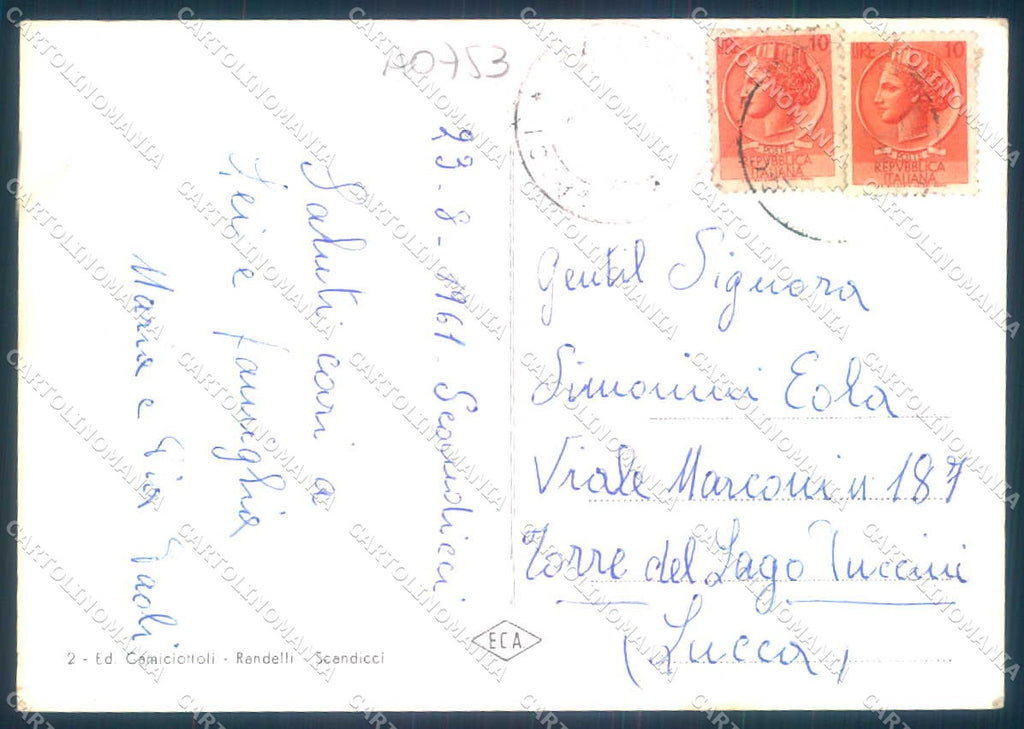 A0753
LIRE 10
POSTE
REPVBBLICA
ITALIANA
LIRE 10
POSTE
REPVBBLICA
ITALIANA
23-8-1961. Scandicci
Saluti cari a
Lei e famiglia
Maria e Paoli
Gentil Signora
Simonini Eola
Viale Marconi n 187
Torre del Lago Puccini
(Lucca)
2 - Ed. Camiciottoli - Randelli - Scandicci
ECA
CARTOLINOMANIA